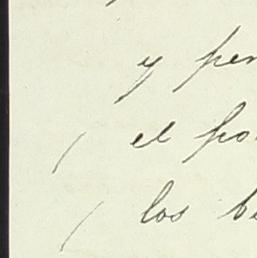 y per
el po
los be